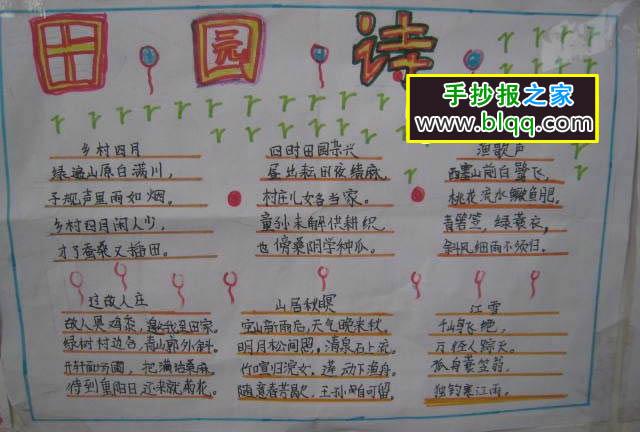 田园诗
手抄报之家
www.blqq.com
乡村四月
绿遍山原白满川，
子规声里雨如烟。
乡村四月闲人少，
才了蚕桑又插田。
四时田园杂兴
昼出耘田夜绩麻，
村庄儿女各当家。
童孙未解供耕织，
也傍桑阴学种瓜。
渔歌子
西塞山前白鹭飞，
桃花流水鳜鱼肥。
青箬笠，绿蓑衣，
斜风细雨不须归。
过故人庄
故人具鸡黍，邀我至田家。
绿树村边合，青山郭外斜。
开轩面场圃，把酒话桑麻。
待到重阳日，还来就菊花。
山居秋暝
空山新雨后，天气晚来秋。
明月松间照，清泉石上流。
竹喧归浣女，莲动下渔舟。
随意春芳歇，王孙自可留。
江雪
千山鸟飞绝，
万径人踪灭。
孤舟蓑笠翁，
独钓寒江雨。